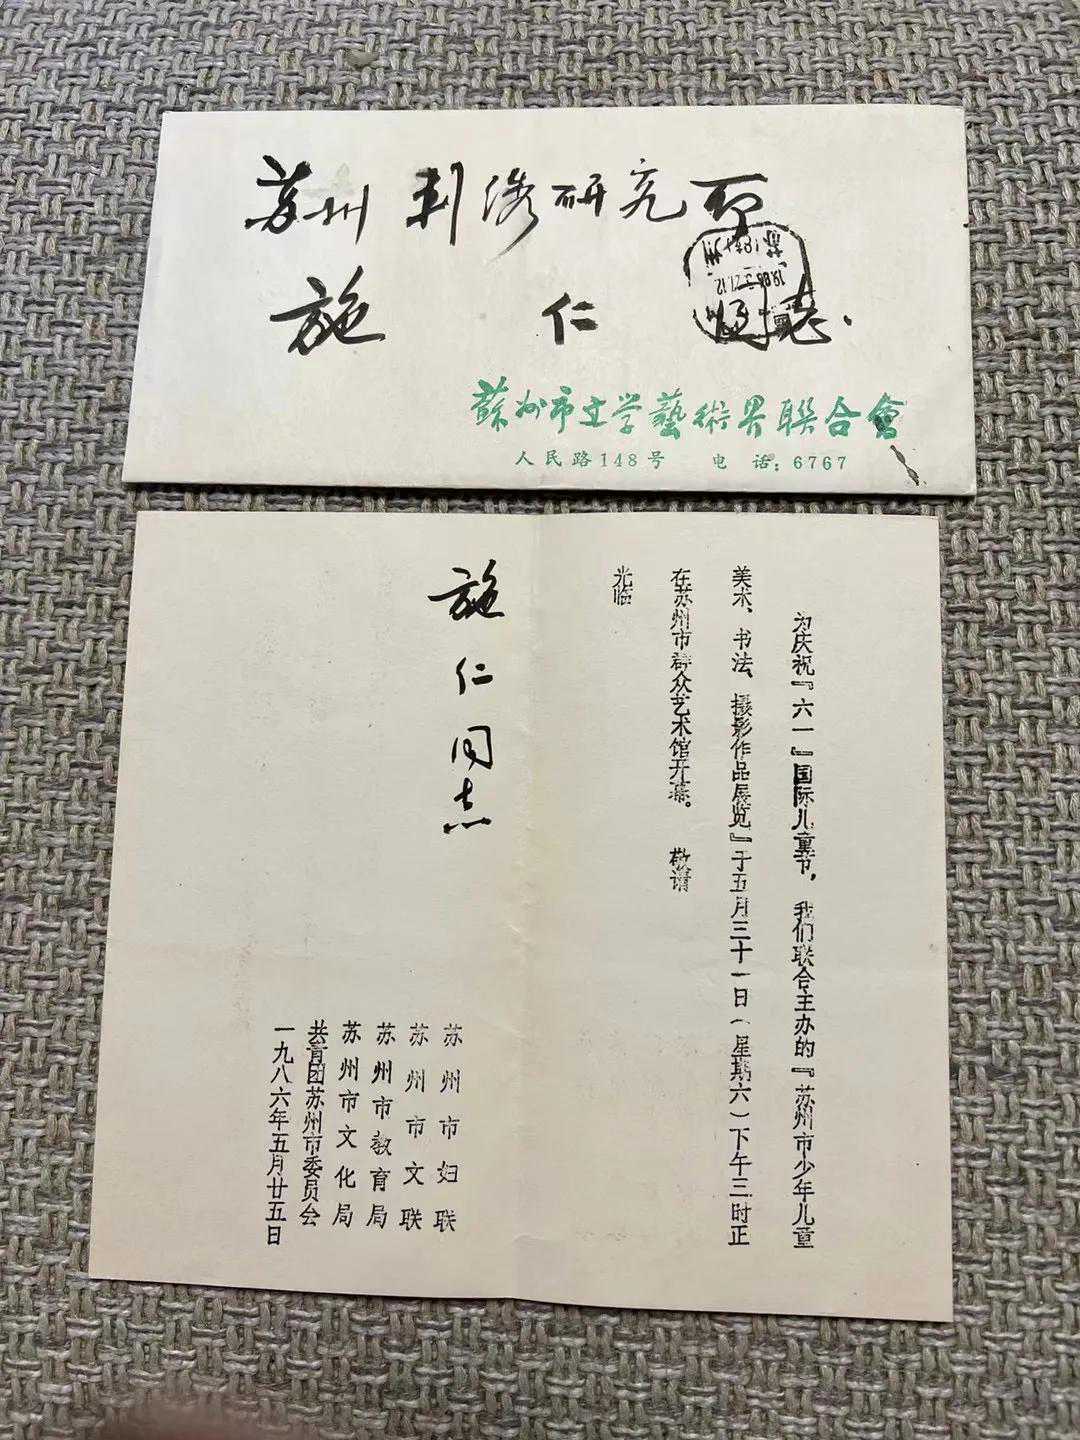 苏州刺绣研究所
施 仁 同志.
苏州
蘇州市文学藝術界聯合會
人民路148号 电话:6767
为庆祝『六一』国际儿童节,我们联合主办的『苏州市少年儿童
美术、书法、摄影作品展览』于五月三十一日(星期六)下午三时正
在苏州市群众艺术馆开幕。 敬请
光临
施仁同志
苏州市妇联
苏州市文联
苏州市教育局
苏州市文化局
共青团苏州市委员会
一九八六年五月廿五日